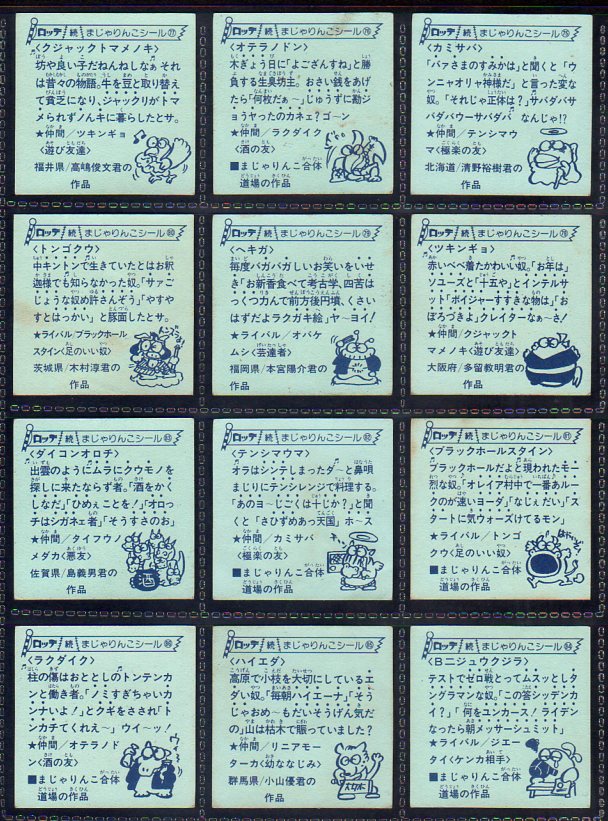 ロッテ 続 まじゃりんこシール 77
〈クジャックトマメノキ〉
坊や良い子だねんねしなぁ それ
は昔々の物語。牛を豆と取り替え
て貧乏になり、ジャックリがトマ
メられずノん キに暮らしたとサ。
★仲間/ツキンギョ
〈遊び友達〉
福井県/高嶋俊文君の
作品
ロッテ 続 まじゃりんこシール 76
〈オテラノドン〉
木ぎょう日に「よごござんすね」と勝
負する生臭坊主。おさい銭をあげ
たら「何枚だぁ〜」じゅうずに勘ジ
ョうやったのカネェ?ゴ〜ン
★仲間/ラクダイク
〈酒の友〉
■まじゃりんこ合体
道場の作品
ロッテ 続 まじゃりんこシール 75
〈カミサバ〉
「バァさまのすみかは」と聞くと「ウ
ンニャオリャ神様だ」と言った変な
奴。「それじゃ正体は?」サバダバサ
バダバウーサバダバ なんじゃ!?
★仲間/テンシマウ
マ〈極楽の友〉
北海道/清野裕樹君の
作品
ロッテ 続 まじゃりんこシール 80
〈トンゴクウ〉
中キントンで生きていたとはお釈
迦様でも知らなかった奴。「サァご
じょうな奴め許さんぞう」「やすや
すとはっかい」と豚面したとサ。
★ライバル/ブラックホール
スタイン〈足のいい奴〉
茨城県/木村淳君の
作品
ロッテ 続 まじゃりんこシール 79
〈ヘキガ〉
毎度バガバガしいお笑いをいせ
き「お新香食べて考古学、四苦は
っくつ力んで前方後円墳、くさい
はずだよラクガキ絵」や〜ヨイ!
★ライバル/オバケ
ムシく〈芸達者〉
福岡県/本宮陽介君の
作品
ロッテ 続 まじゃりんこシール 78
〈ツキンギョ〉
赤いべべ着たかわいい奴。「お年は」
ソユーズと「十五や」とインテルサ
ット「ボイジャーすすきな物は」「お
ぼろづきよ」クレイターなぁ〜さ!
★仲間/クジャックト
マメノキ〈遊び友達〉
大阪府/多留教明君の
作品
ロッテ 続 まじゃりんこシール 83
〈ダイコンオロチ〉
出雲のようにムラにクウモノを
探しに来たならず者。「酒をかく
しなだ」「ひめぇことを!」「オロッ
チはシガネェ者」「そうすさのお」
★仲間/タイフウノ
メダカ〈悪友〉
佐賀県/島義男君の
作品
酒
ロッテ 続 まじゃりんこシール 82
〈テンシマウマ〉
オラはシンテしまったダ〜と鼻唄
まじりにテンシレンジで料理する。
「あのヨ〜じごくは十じか?」と聞
くと「さひずめあっ天国」ホ〜ス
★仲間/カミサバ
〈極楽の友〉
■まじゃりんこ合体
道場の作品
ロッテ 続 まじゃりんこシール 81
〈ブラックホールスタイン〉
ブラックホールだよと現われたモー
烈な奴。「オレイア村中で一番あルー
クのが速いーヨーダ」「なじぇだい」「ス
タートに気ウォーズけてるモン」
★ライバル/トンゴ
クウく〈足のいい奴〉
■まじゃりんこ合体
道場の作品
ロッテ 続 まじゃりんこシール 86
〈ラクダイク〉
柱の傷はおととしのトンテンカ
ンと働き者。「ノミすぎちゃいカ
ンナいよ!」とクギをさされ「ト
ンカチてくれえ〜」ウイ〜ッ!
★仲間/オテラノド
ン〈酒の友〉
■まじゃりんこ合体
道場の作品
ロッテ 続 まじゃりんこシール 85
〈ハイエダ〉
高原で小枝を大切にしているエ
ダい奴。「毎朝ハイエーナ」「そう
じゃおめ〜もだいそうげん気だ
の」山は枯れ木で賑っていました?
★仲間/リニアモー
ターカ〈幼ななじみ〉
群馬県/小山優君の
作品
ロッテ 続 まじゃりんこシール 84
〈Bニジュウクジラ〉
テストでゼロ戦とってムスッとしク
ングラマンな奴。「この答シッデンカ
イ?」「何をユンカース!ライデン
なったら朝メッサーシュミット」
★ライバル/ジエー
タイ〈ケンカ相手〉
■まじゃりんこ合体
道場の作品